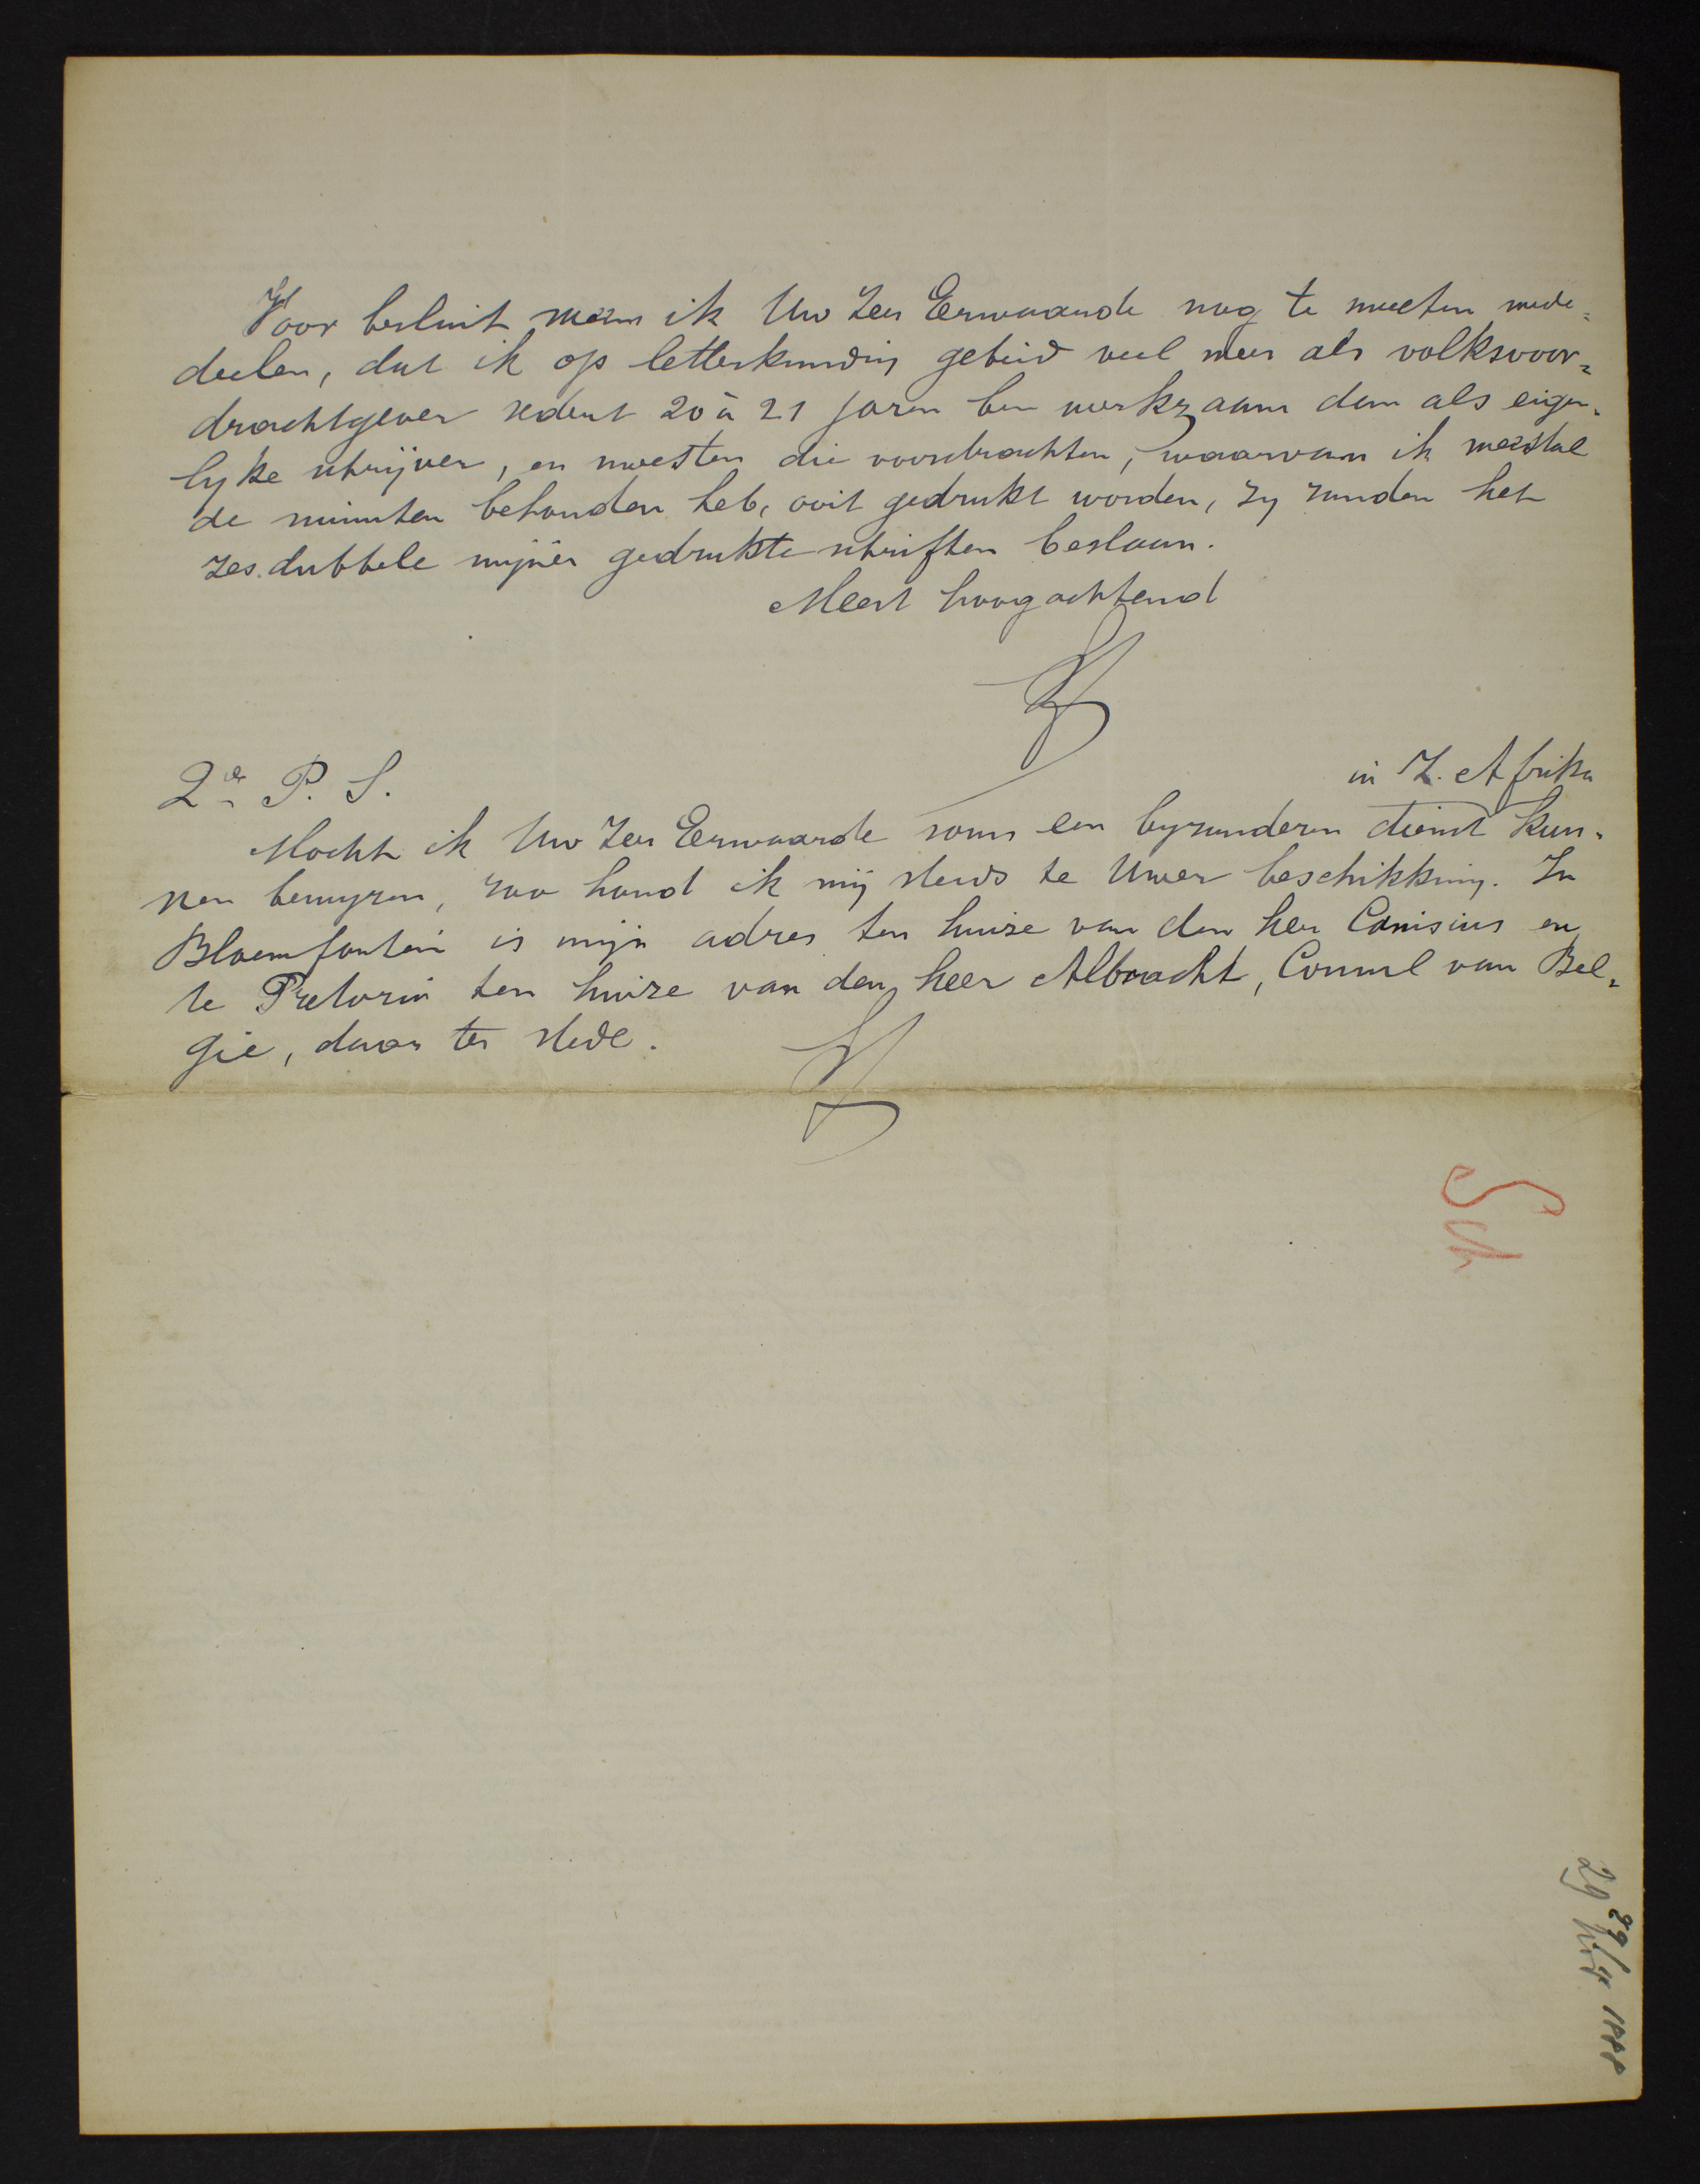 Voor besluit meen ik Uw Zeer Eerwaarde nog te moeten mede-
deelen, dat ik op letterkundig gebied veel meer als volksvoor-
drachtgever sedert 20 à 21 jaren ben werkzaam dan als eigen-
lyke schrijver, en moesten die voordrachten, waarvan ik meestal
de minuten behouden heb, ooit gedrukt worden, zy zouden het
zes.dubbele mijner gedrukte schriften beslaan.
Meest hoogachtend
2de P. S.
in Z. Afrika
Mocht ik Uw Zeer Eerwaarde soms een byzonderen dienst kun-
nen bewyzen, zoo houd ik mij steeds te Uwer beschikking. In
Bloemfontein is mijn adres ten huize van den heer Canisius en
te Pretoria ten huize van den heer Albracht, Consul van Bel-
gie, daar ter stede.
Sch
29 Nov 1888